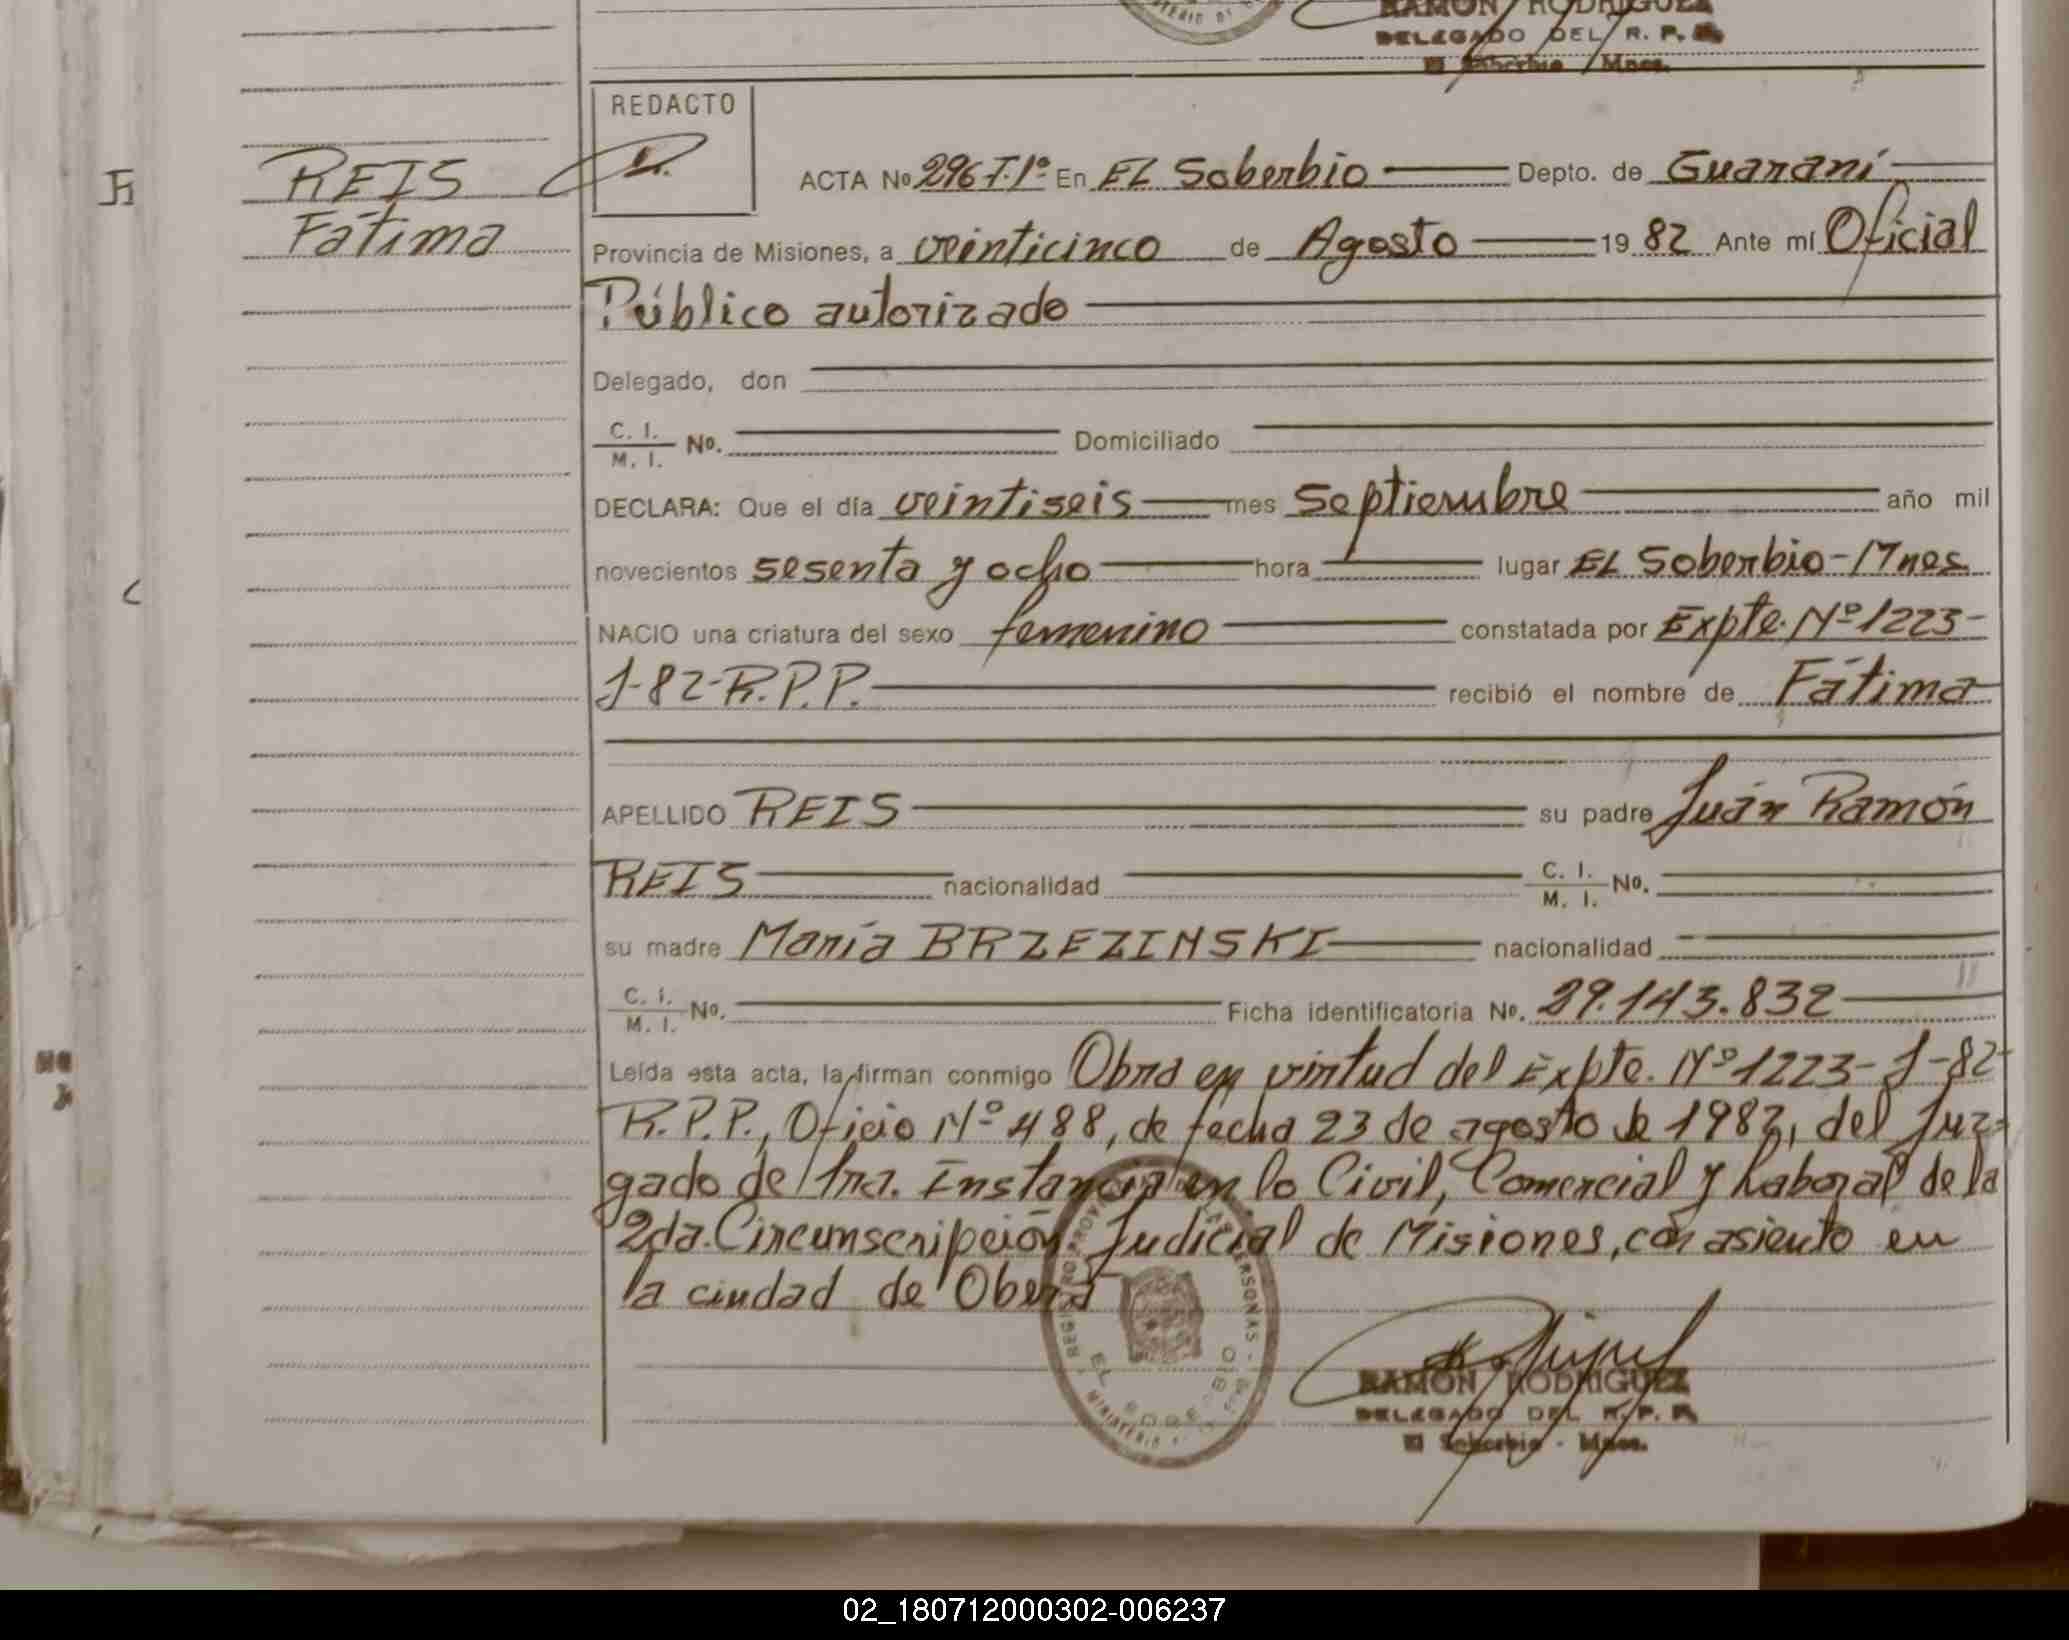 RAMON RODRIGUEZ
DELEGADO DEL R. P. P.
El Soberbio Mnes.
REDACTO
REIS
Fátima
ACTA No 296 T.1º En EL Soberbio Depto. de Guaraní
Provincia de Misiones, a veinticinco de Agosto 19 82 Ante mí Oficial
Público autorizado
Delegado, don
C. I.
M. I. No. Domiciliado
DECLARA: Que el día veintiseis mes Septiembre año mil
novecientos sesenta y ocho hora lugar EL Soberbio-Mnes
NACIO una criatura del sexo femenino constatada por Expte. Nº 1223-
J-82-R.P.P. recibió el nombre de Fátima
APELLIDO REIS su padre Juán Ramón
REIS nacionalidad C. I.
M. I. No.
su madre María BRZEZINSKI nacionalidad
C. I.
M. I. No. Ficha identificatoria No. 29.143.832
Leída esta acta, la firman conmigo Obra en virtud del Expte. Nº 1223-J-82-
R.P.P., Oficio Nº 488, de fecha 23 de agosto de 1982, del Juz-
gado de 1ra. Instancia en lo Civil, Comercial y Laboral de la
2da. Circunscripción Judicial de Misiones, con asiento en
la ciudad de Oberá
EL SOBERBIO
RAMON RODRIGUEZ
DELEGADO DEL R. P. P.
El Soberbio - Mnes.
02_180712000302-006237